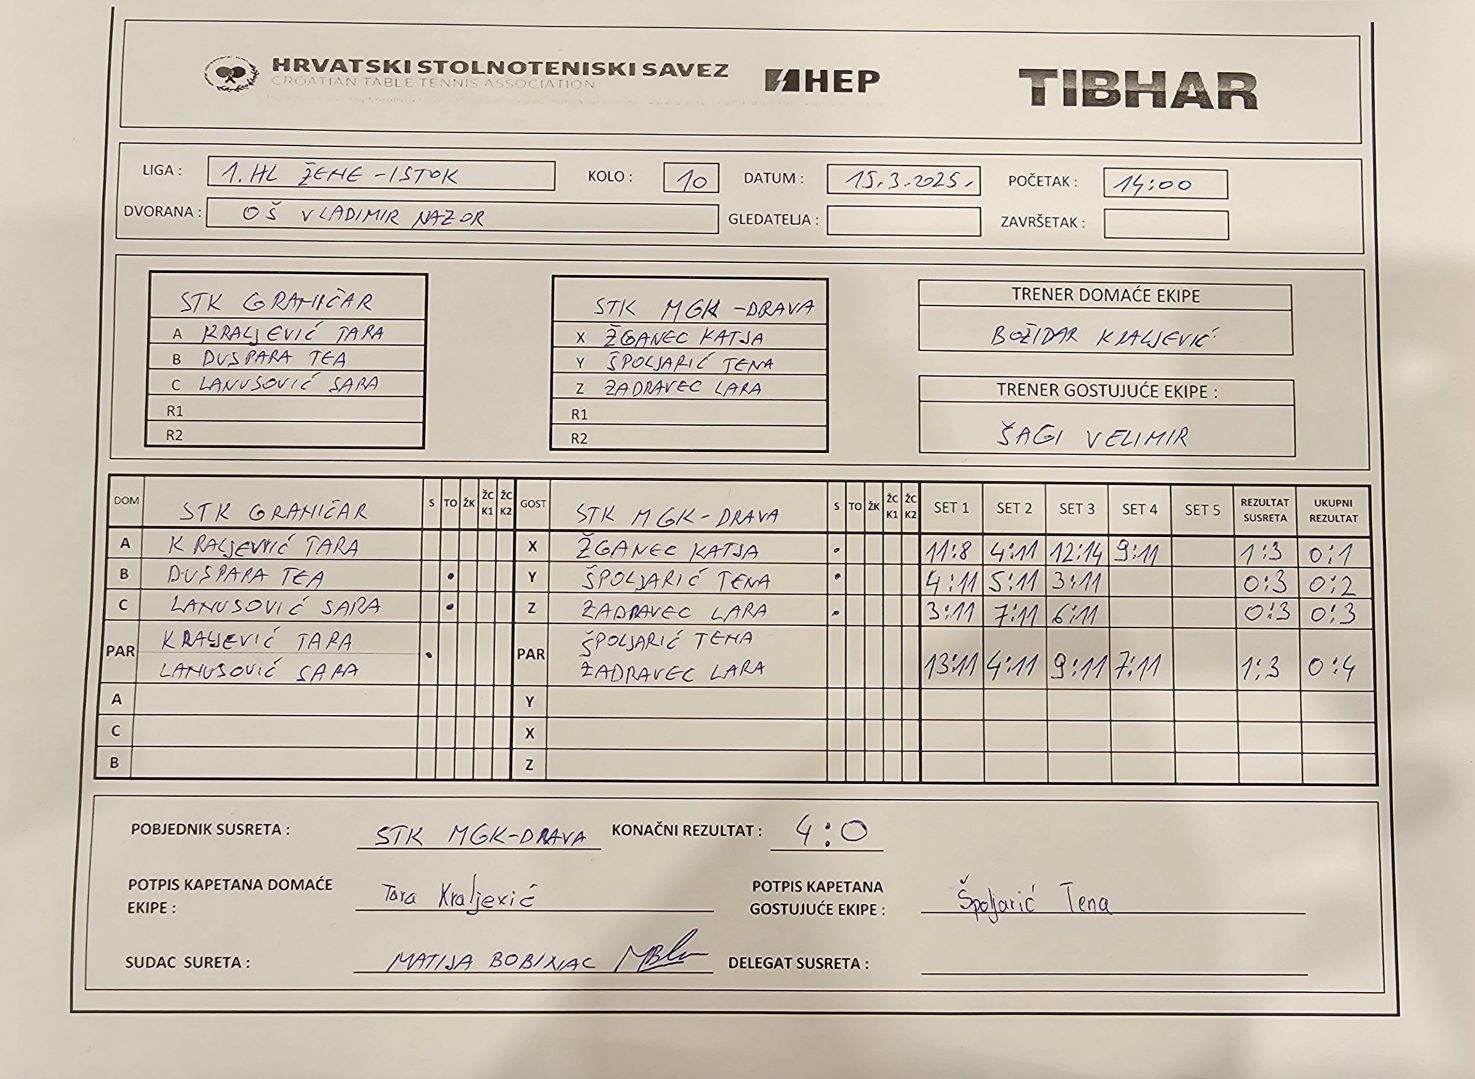 HRVATSKI STOLNOTENISKI SAVEZ
CROATIAN TABLE TENNIS ASSOCIATION
HEP
TIBHAR
LIGA : 1. HL ŽENE - ISTOK KOLO : 10 DATUM : 15.3.2025. POČETAK : 14:00
DVORANA : OŠ VLADIMIR NAZOR GLEDATELJA : ZAVRŠETAK :
STK GRANIČAR
A KRALJEVIĆ TARA
B DUSPARA TEA
C LANUSOVIĆ SARA
R1
R2
STK MGK - DRAVA
X ŽGANEC KATJA
Y ŠPOLJARIĆ TENA
Z ZADRAVEC LARA
R1
R2
TRENER DOMAĆE EKIPE
BOŽIDAR KRALJEVIĆ
TRENER GOSTUJUĆE EKIPE :
ŠAGI VELIMIR
DOM STK GRANIČAR S TO ŽK ŽC K1 ŽC K2 GOST STK MGK - DRAVA S TO ŽK ŽC K1 ŽC K2 SET 1 SET 2 SET 3 SET 4 SET 5 REZULTAT SUSRETA UKUPNI REZULTAT
A KRALJEVIĆ TARA X ŽGANEC KATJA 11:8 4:11 12:14 9:11 1:3 0:1
B DUSPARA TEA Y ŠPOLJARIĆ TENA 4:11 5:11 3:11 0:3 0:2
C LANUSOVIĆ SARA Z ZADRAVEC LARA 3:11 7:11 6:11 0:3 0:3
PAR KRALJEVIĆ TARA PAR ŠPOLJARIĆ TENA
LANUSOVIĆ SARA ZADRAVEC LARA 13:11 4:11 9:11 7:11 1:3 0:4
A Y
C X
B Z
POBJEDNIK SUSRETA : STK MGK-DRAVA KONAČNI REZULTAT : 4:0
POTPIS KAPETANA DOMAĆE
EKIPE : Tara Kraljević
POTPIS KAPETANA
GOSTUJUĆE EKIPE : Špoljarić Tena
SUDAC SURETA : MATIJA BOBINAC DELEGAT SUSRETA :